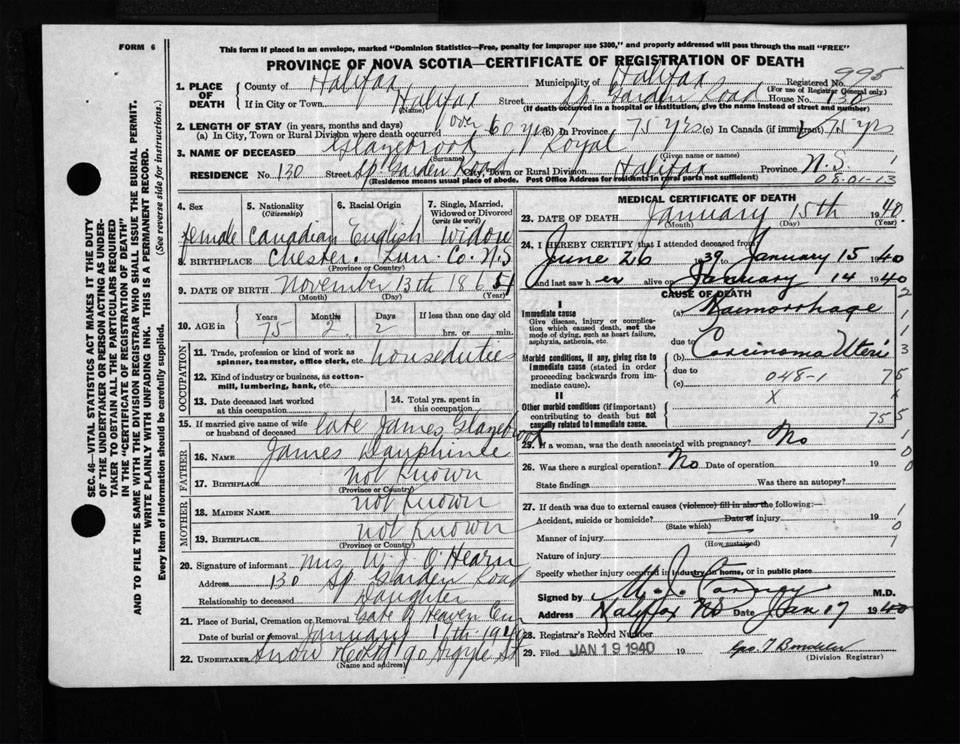 FORM 6
This form if placed in an envelope, marked "Dominion Statistics—Free, penalty for improper use $300," and properly addressed will pass through the mail "FREE"
PROVINCE OF NOVA SCOTIA—CERTIFICATE OF REGISTRATION OF DEATH
995
1. PLACE OF DEATH { County of Halifax Municipality of Halifax Registered No. (For use of Registrar General only)
If in City or Town Halifax (Name) Street Sp. Garden Road House No. 130
(If death occurred in a hospital or institution, give the name instead of street and number)
2. LENGTH OF STAY (in years, months and days)
(a) In City, Town or Rural Division where death occurred over 60 yrs (B) In Province 75 yrs (c) In Canada (if immigrant) 75 yrs
3. NAME OF DECEASED Glazebrook, Royal
(Surname) (Given name or names)
RESIDENCE No. 130 Street Sp. Garden Road City, Town or Rural Division Halifax Province N.S.
(Residence means usual place of abode. Post Office Address for residents in rural parts not sufficient) 08-01-13
4. Sex female
5. Nationality (Citizenship) Canadian
6. Racial Origin English
7. Single, Married, Widowed or Divorced (write the word) Widow
8. BIRTHPLACE Chester. Lun. Co. N.S
(Province or Country)
9. DATE OF BIRTH November 13th 1864
(Month) (Day) (Year)
10. AGE in { Years 75 Months 2 Days 2 If less than one day old hrs. or min.
OCCUPATION
11. Trade, profession or kind of work as spinner, teamster, office clerk, etc. houseduties
12. Kind of industry or business, as cotton-mill, lumbering, bank, etc.
13. Date deceased last worked at this occupation
14. Total yrs. spent in this occupation
15. If married give name of wife or husband of deceased late James Glazebrook
FATHER
16. NAME James Dauphinee
17. BIRTHPLACE not known
(Province or Country)
MOTHER
18. MAIDEN NAME not known
19. BIRTHPLACE not known
(Province or Country)
20. Signature of informant Mrs W. J. O'Hearn
Address 130 Sp. Garden Road
Relationship to deceased Daughter
21. Place of Burial, Cremation or Removal Gate of Heaven Cem
Date of burial or removal January 1940
22. UNDERTAKER Snow 90 Argyle St
(Name and address)
MEDICAL CERTIFICATE OF DEATH
23. DATE OF DEATH January 15th 1940.
(Month) (Day)
24. I HEREBY CERTIFY that I attended deceased from
June 26 1939 to January 15 1940
and last saw her alive on January 14 1940
CAUSE OF DEATH
I
Immediate cause
Give disease, injury or complication which caused death, not the mode of dying, such as heart failure, asphyxia, asthenia, etc.
(a) Haemorrhage
due to
Morbid conditions, if any, giving rise to immediate cause (stated in order proceeding backwards from immediate cause).
(b) Carcinoma Uteri
due to
(c) 048-1
II
Other morbid conditions (if important) contributing to death but not causally related to immediate cause.
x x
2
1
1
3
75
1
75 5
25. If a woman, was the death associated with pregnancy? No
26. Was there a surgical operation? No Date of operation 19
State findings Was there an autopsy?
27. If death was due to external causes (violence) fill in also the following:—
Accident, suicide or homicide? Date of injury 19
(State which)
Manner of injury (How sustained)
Nature of injury
Specify whether injury occurred in industry in home, or in public place
Signed by M.D.
Address Halifax NS Date Jan 17 1940
28. Registrar's Record Number
29. Filed JAN 19 1940 19
(Division Registrar)
SEC. 46—VITAL STATISTICS ACT MAKES IT THE DUTY
OF THE UNDERTAKER OR PERSON ACTING AS UNDER-
TAKER TO OBTAIN ALL THE PARTICULARS REQUIRED
IN THE "CERTIFICATE OF REGISTRATION OF DEATH"
AND TO FILE THE SAME WITH THE DIVISION REGISTRAR WHO SHALL ISSUE THE BURIAL PERMIT.
WRITE PLAINLY WITH UNFADING INK. THIS IS A PERMANENT RECORD.
Every item of Information should be carefully supplied. (See reverse side for instructions.)